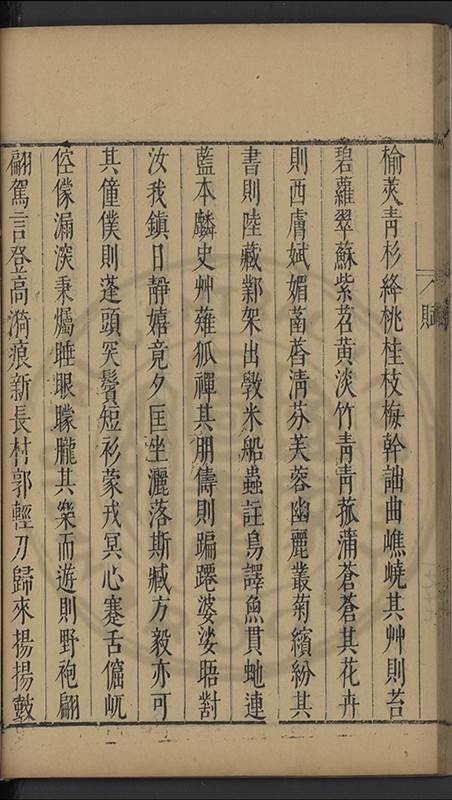 賦
榆莢青杉絳桃桂枝梅幹詘曲嶕嶢其艸則苔
碧蘿翠蘇紫苕黃淡竹青青菰蒲蒼蒼其花卉
則西膚斌媚菡萏清芬芙蓉幽麗叢菊繽紛其
書則陸藏鄴架出斅米船蟲註鳥譯魚貫虵連
藍本麟史艸薙狐禪其朋儔則蹁躚婆娑晤對
汝我鎮日靜嬉竟夕匡坐灑落斯臧方毅亦可
其僮僕則蓬頭突鬢短衫蒙戎冥心蹇舌倔屼
倥儚漏深秉爥睡眼矇朧其樂而遊則野袍翩
翩駕言登高漪痕新長村郭輕刀歸來揚揚鼓